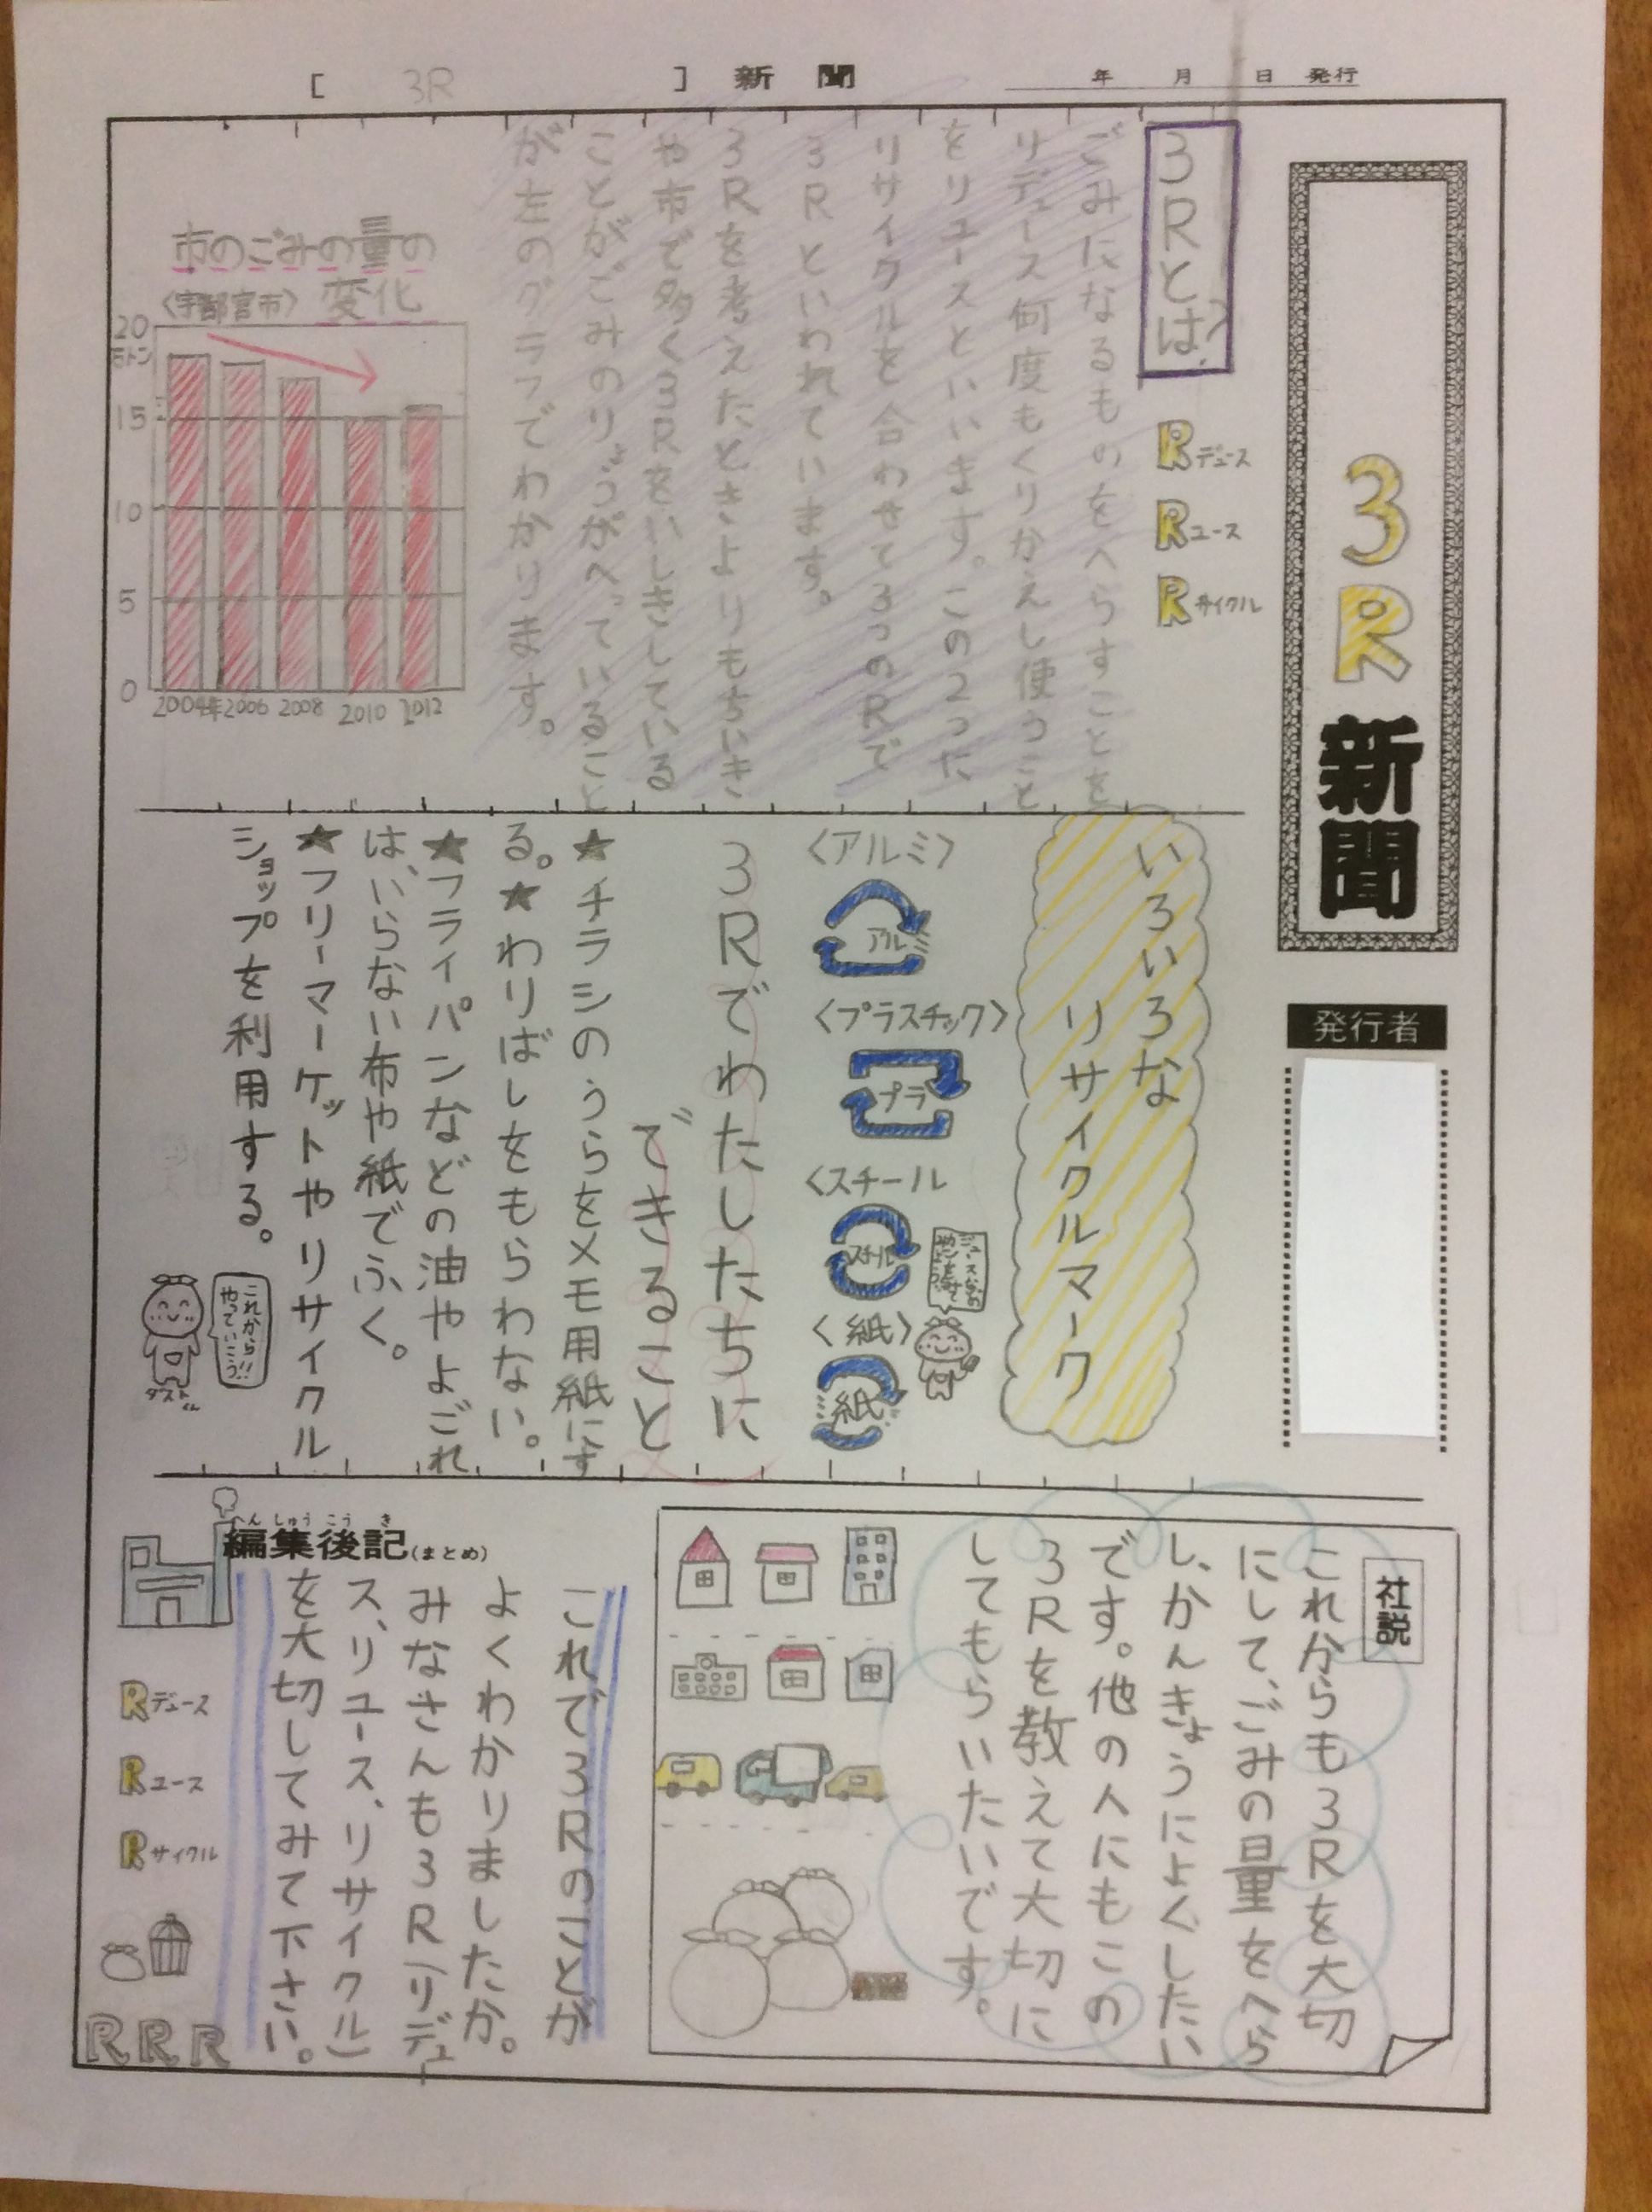 [ 3R ] 新聞
年 月 日 発行
3R 新聞
発行者
3Rとは?
Rデュース
Rユース
Rサイクル
ごみになるものをへらすことを
リデュース何度もくりかえし使うこと
をリユースといいます。この2つに
リサイクルを合わせて3つのRで
3Rといわれています。
3Rを考えたときよりもちいき
や市で多く3Rをいしきしている
ことが、ごみのりょうがへっていること
が左のグラフでわかります。
市のごみの量の
変化
〈宇都宮市〉
20
万トン
15
10
5
0
2004年
2006
2008
2010
2012
いろいろな
リサイクルマーク
〈アルミ〉
アルミ
〈プラスチック〉
プラ
〈スチール
スチール
〈紙〉
紙
3Rでわたしたちに
できること
★チラシのうらをメモ用紙にす
る。★わりばしをもらわない。
★フライパンなどの油やよごれ
は、いらない布や紙でふく。
★フリーマーケットやリサイクル
ショップを利用する。
これから!!
やっていこう!
ダストくん
社説
これからも3Rを大切
にして、ごみの量をへら
し、かんきょうによくしたい
です。他の人にもこの
3Rを教えて大切に
してもらいたいです。
編集後記(まとめ)
へんしゅうこうき
これで3Rのことが
よくわかりましたか。
みなさんも3R(リデュー
ス、リユース、リサイクル)
を大切してみて下さい。
Rデュース
Rユース
Rサイクル
RRR